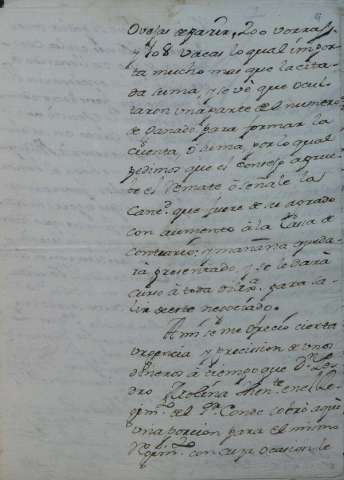 Ovejas de parir, 200 borras,
y 108 Vacas lo qual impor
ta mucho mas que la cita
da suma, y se vé que ocul
taron una parte de el numero
de Ganado para formar la
cuenta, ó suma, por lo qual
pedimos que el Consejo aprue
be el Remate ó señale la
Canᵈ. que fuere de su agrado
con aumento á la Casa
contrario; y mañana queda
rá presentado, y se le dará
curso á toda para sa
lir de este negociado.
Amí se me ofreció cierta
urgencia y precision de unos
dineros á tiempo que Dⁿ. Pe
dro Molina en el Re
gimᵗᵒ. del Conde cobró aquí
una porcion para el mismo
Regimᵗᵒ. con cuya ocasion le